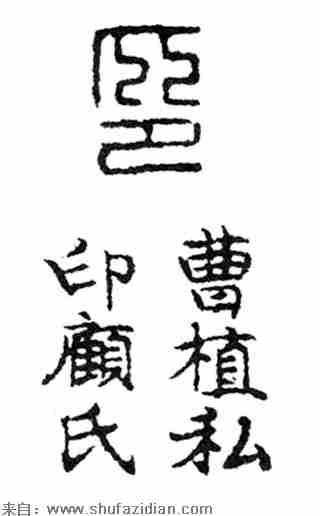 曹植私
印顧氏
来自：www.shufazidian.com